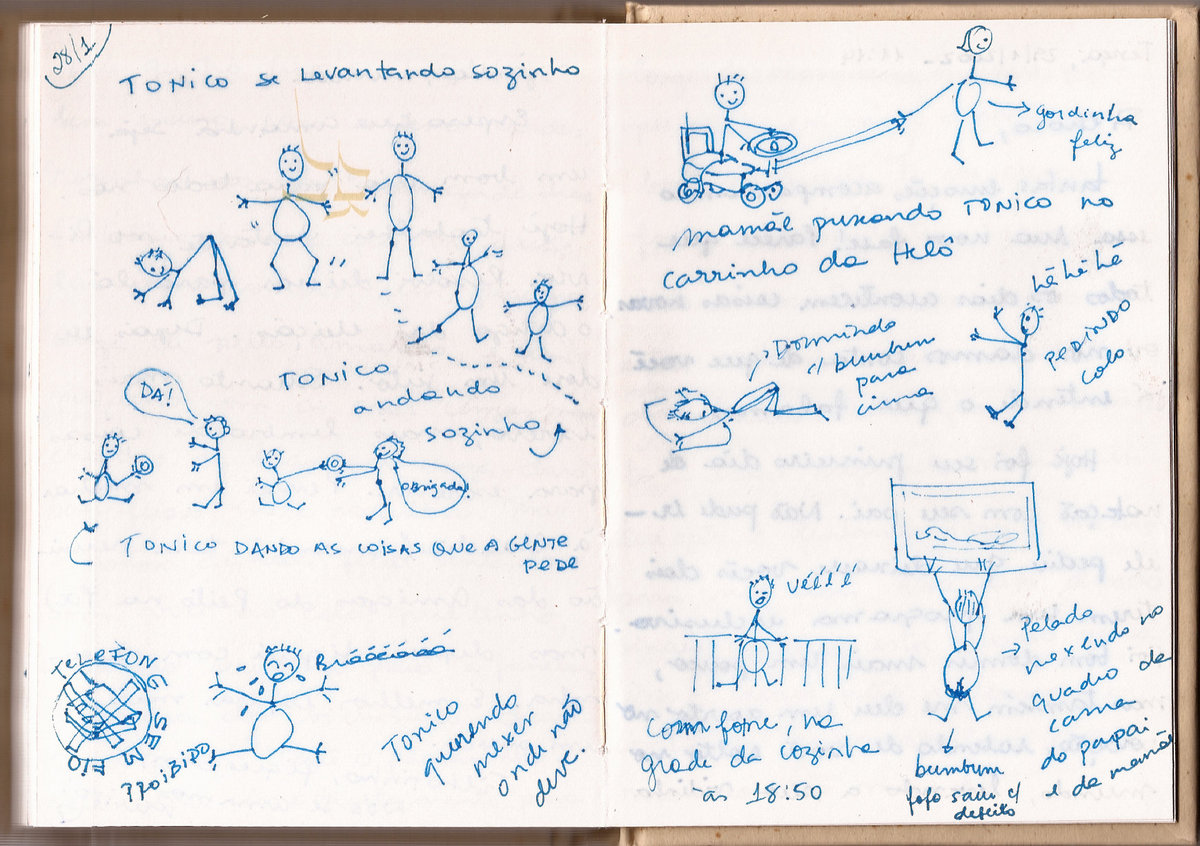 28/1
TONICO se Levantando sozinho
TONICO
andando
sozinho
DÁ!
Obrigada!
TONICO DANDO AS COISAS QUE A GENTE
PEDE
TELEFONE
SEM FIO
PROIBIDO
Buáááááá
Tonico
querendo
mexer
onde não
deve.
gordinha
feliz
mamãe puxando TONICO no
carrinho da Helô
Dormindo
c/ bumbum
para
cima
hêhêhe
PEDINDO
colo
vééé'é'
Com fome, na
grade da cozinha
às 18:50
Pelado
mexendo no
quadro da
cama
do papai
e da mamãe
bumbum
fofo saiu c/
defeito